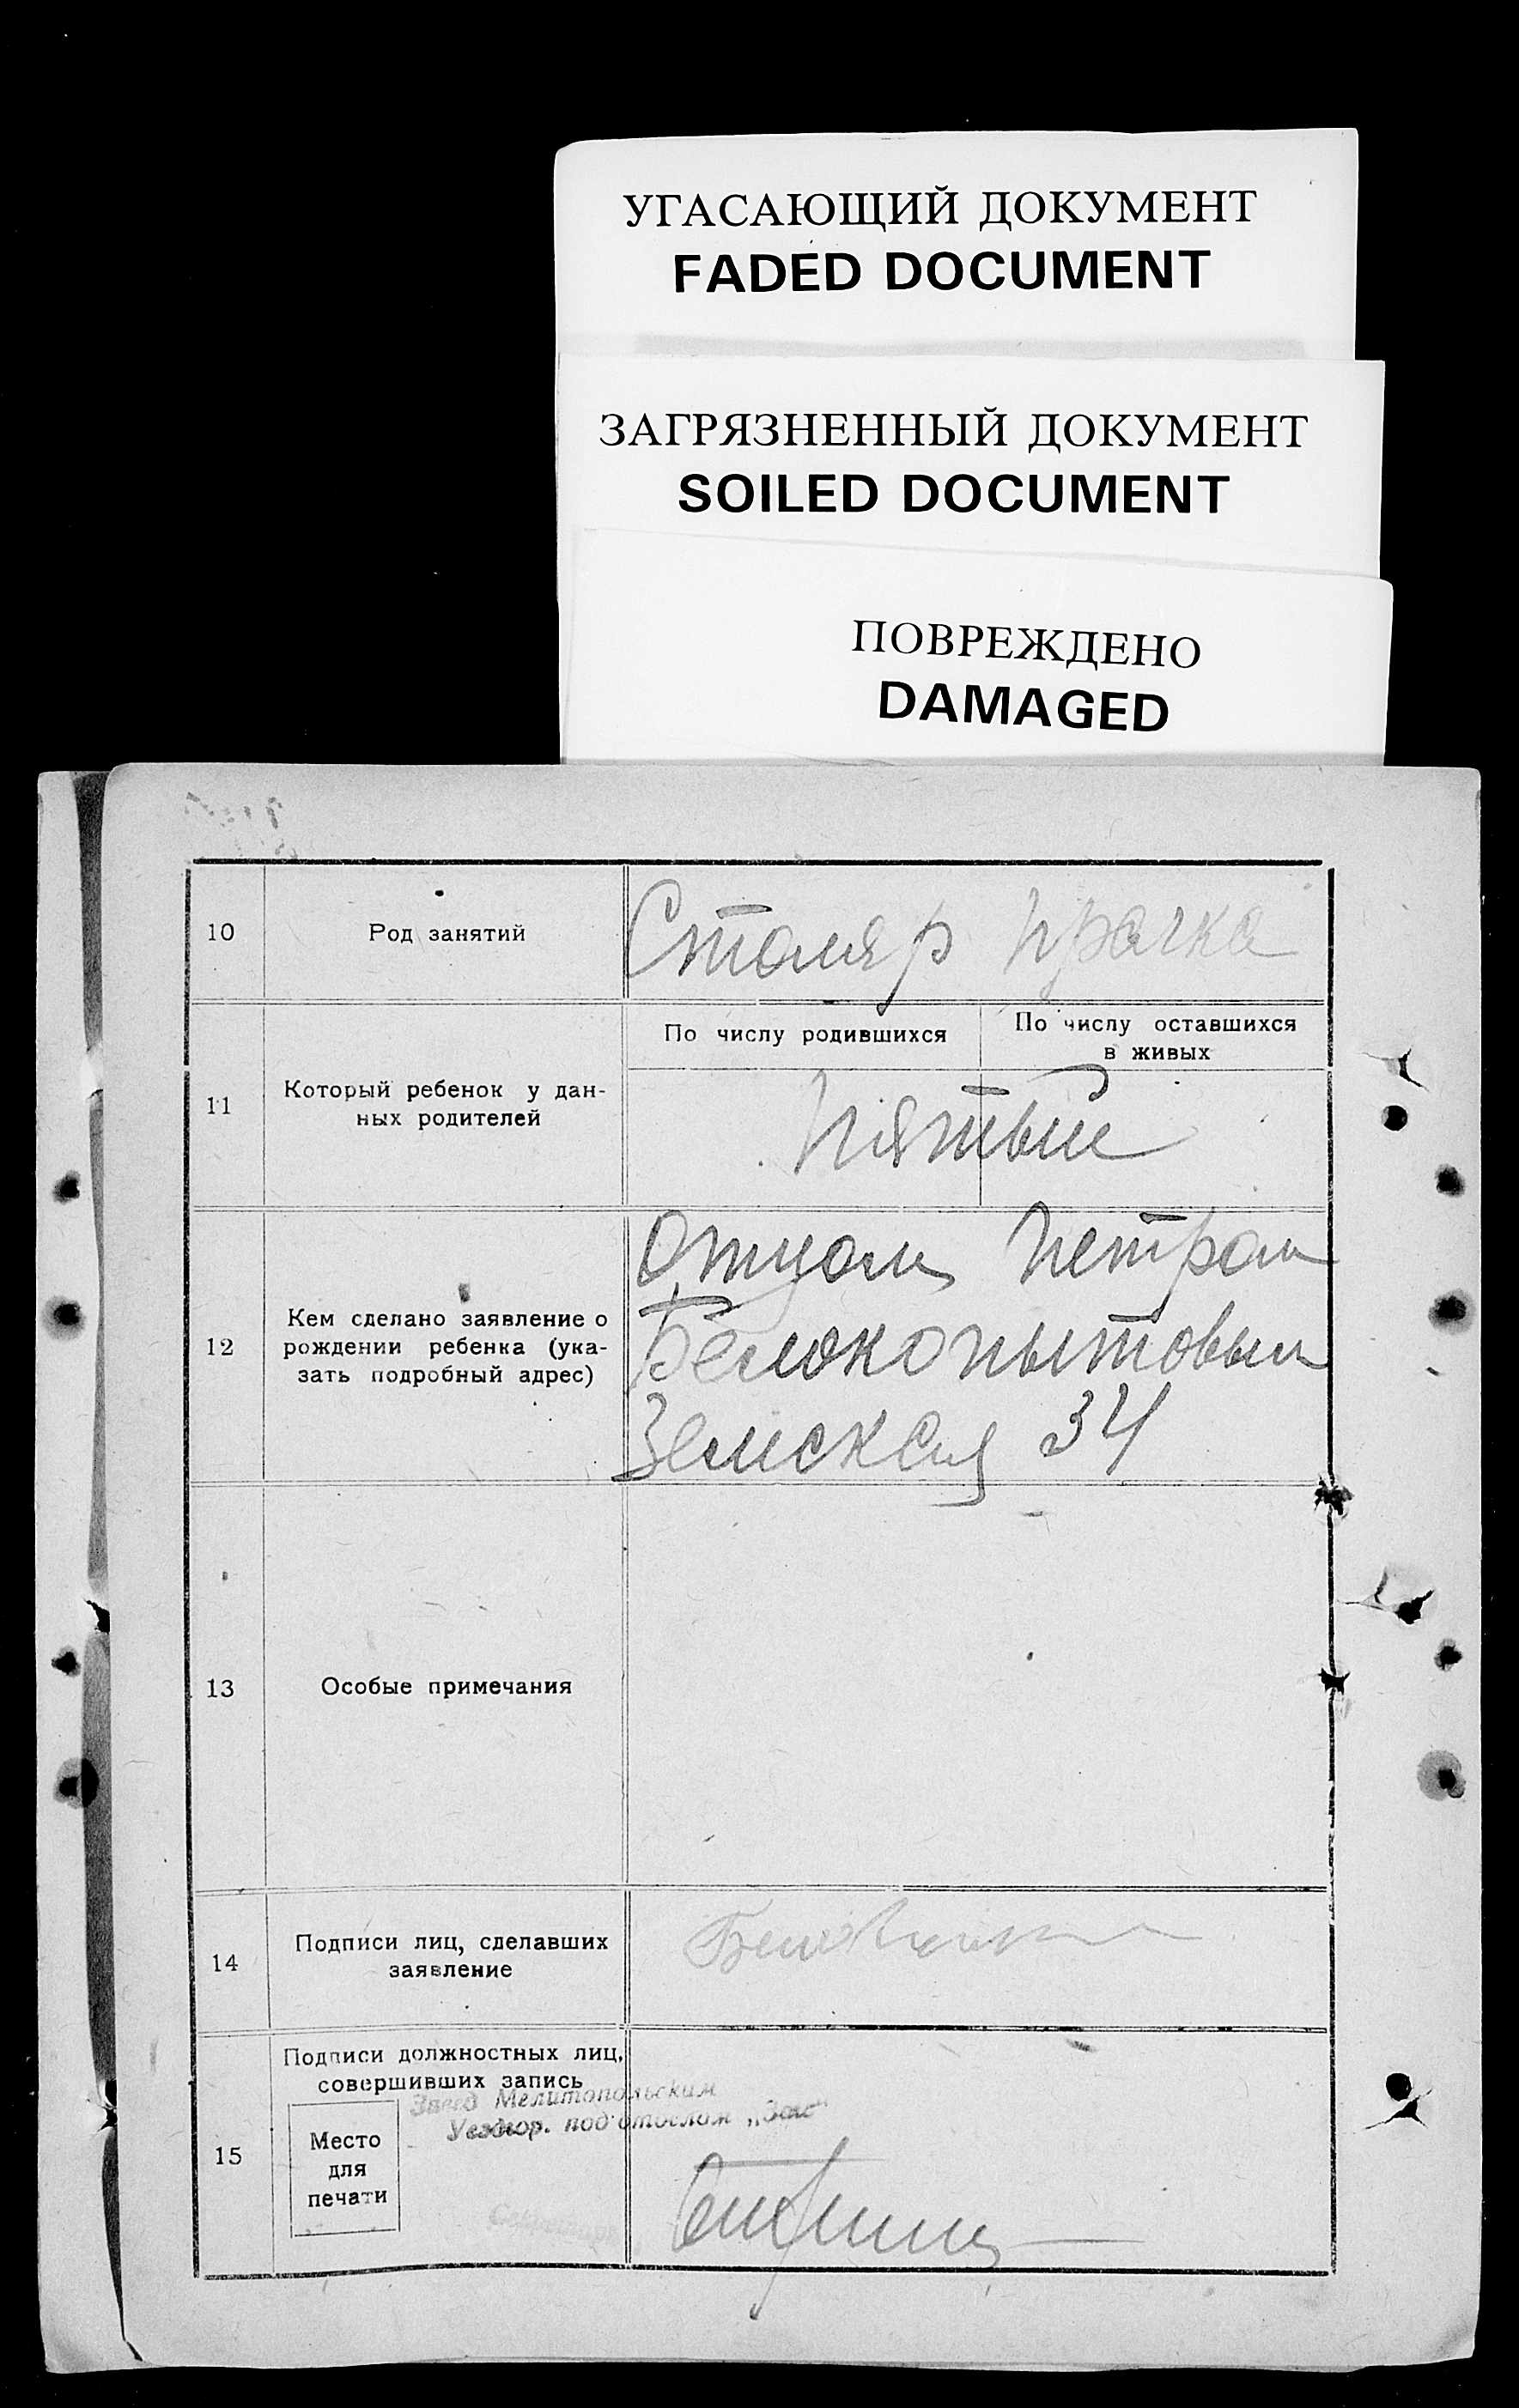 УГАСАЮЩИЙ ДОКУМЕНТ
FADED DOCUMENT
ЗАГРЯЗНЕННЫЙ ДОКУМЕНТ
SOILED DOCUMENT
ПОВРЕЖДЕНО
DAMAGED
10
Род занятий
Столяр прачка
11
Который ребенок у дан-
ных родителей
По числу родившихся
По числу оставшихся
в живых
Пятый
12
Кем сделано заявление о
рождении ребенка (ука-
зать подробный адрес)
Отцом Петром
Белокопытовым
Земская 34
13
Особые примечания
14
Подписи лиц, сделавших
заявление
15
Подписи должностных лиц,
совершивших запись
Завед Мелитопольским
Уезднор. подотделом „Загс“
Место
для
печати
Секретарь